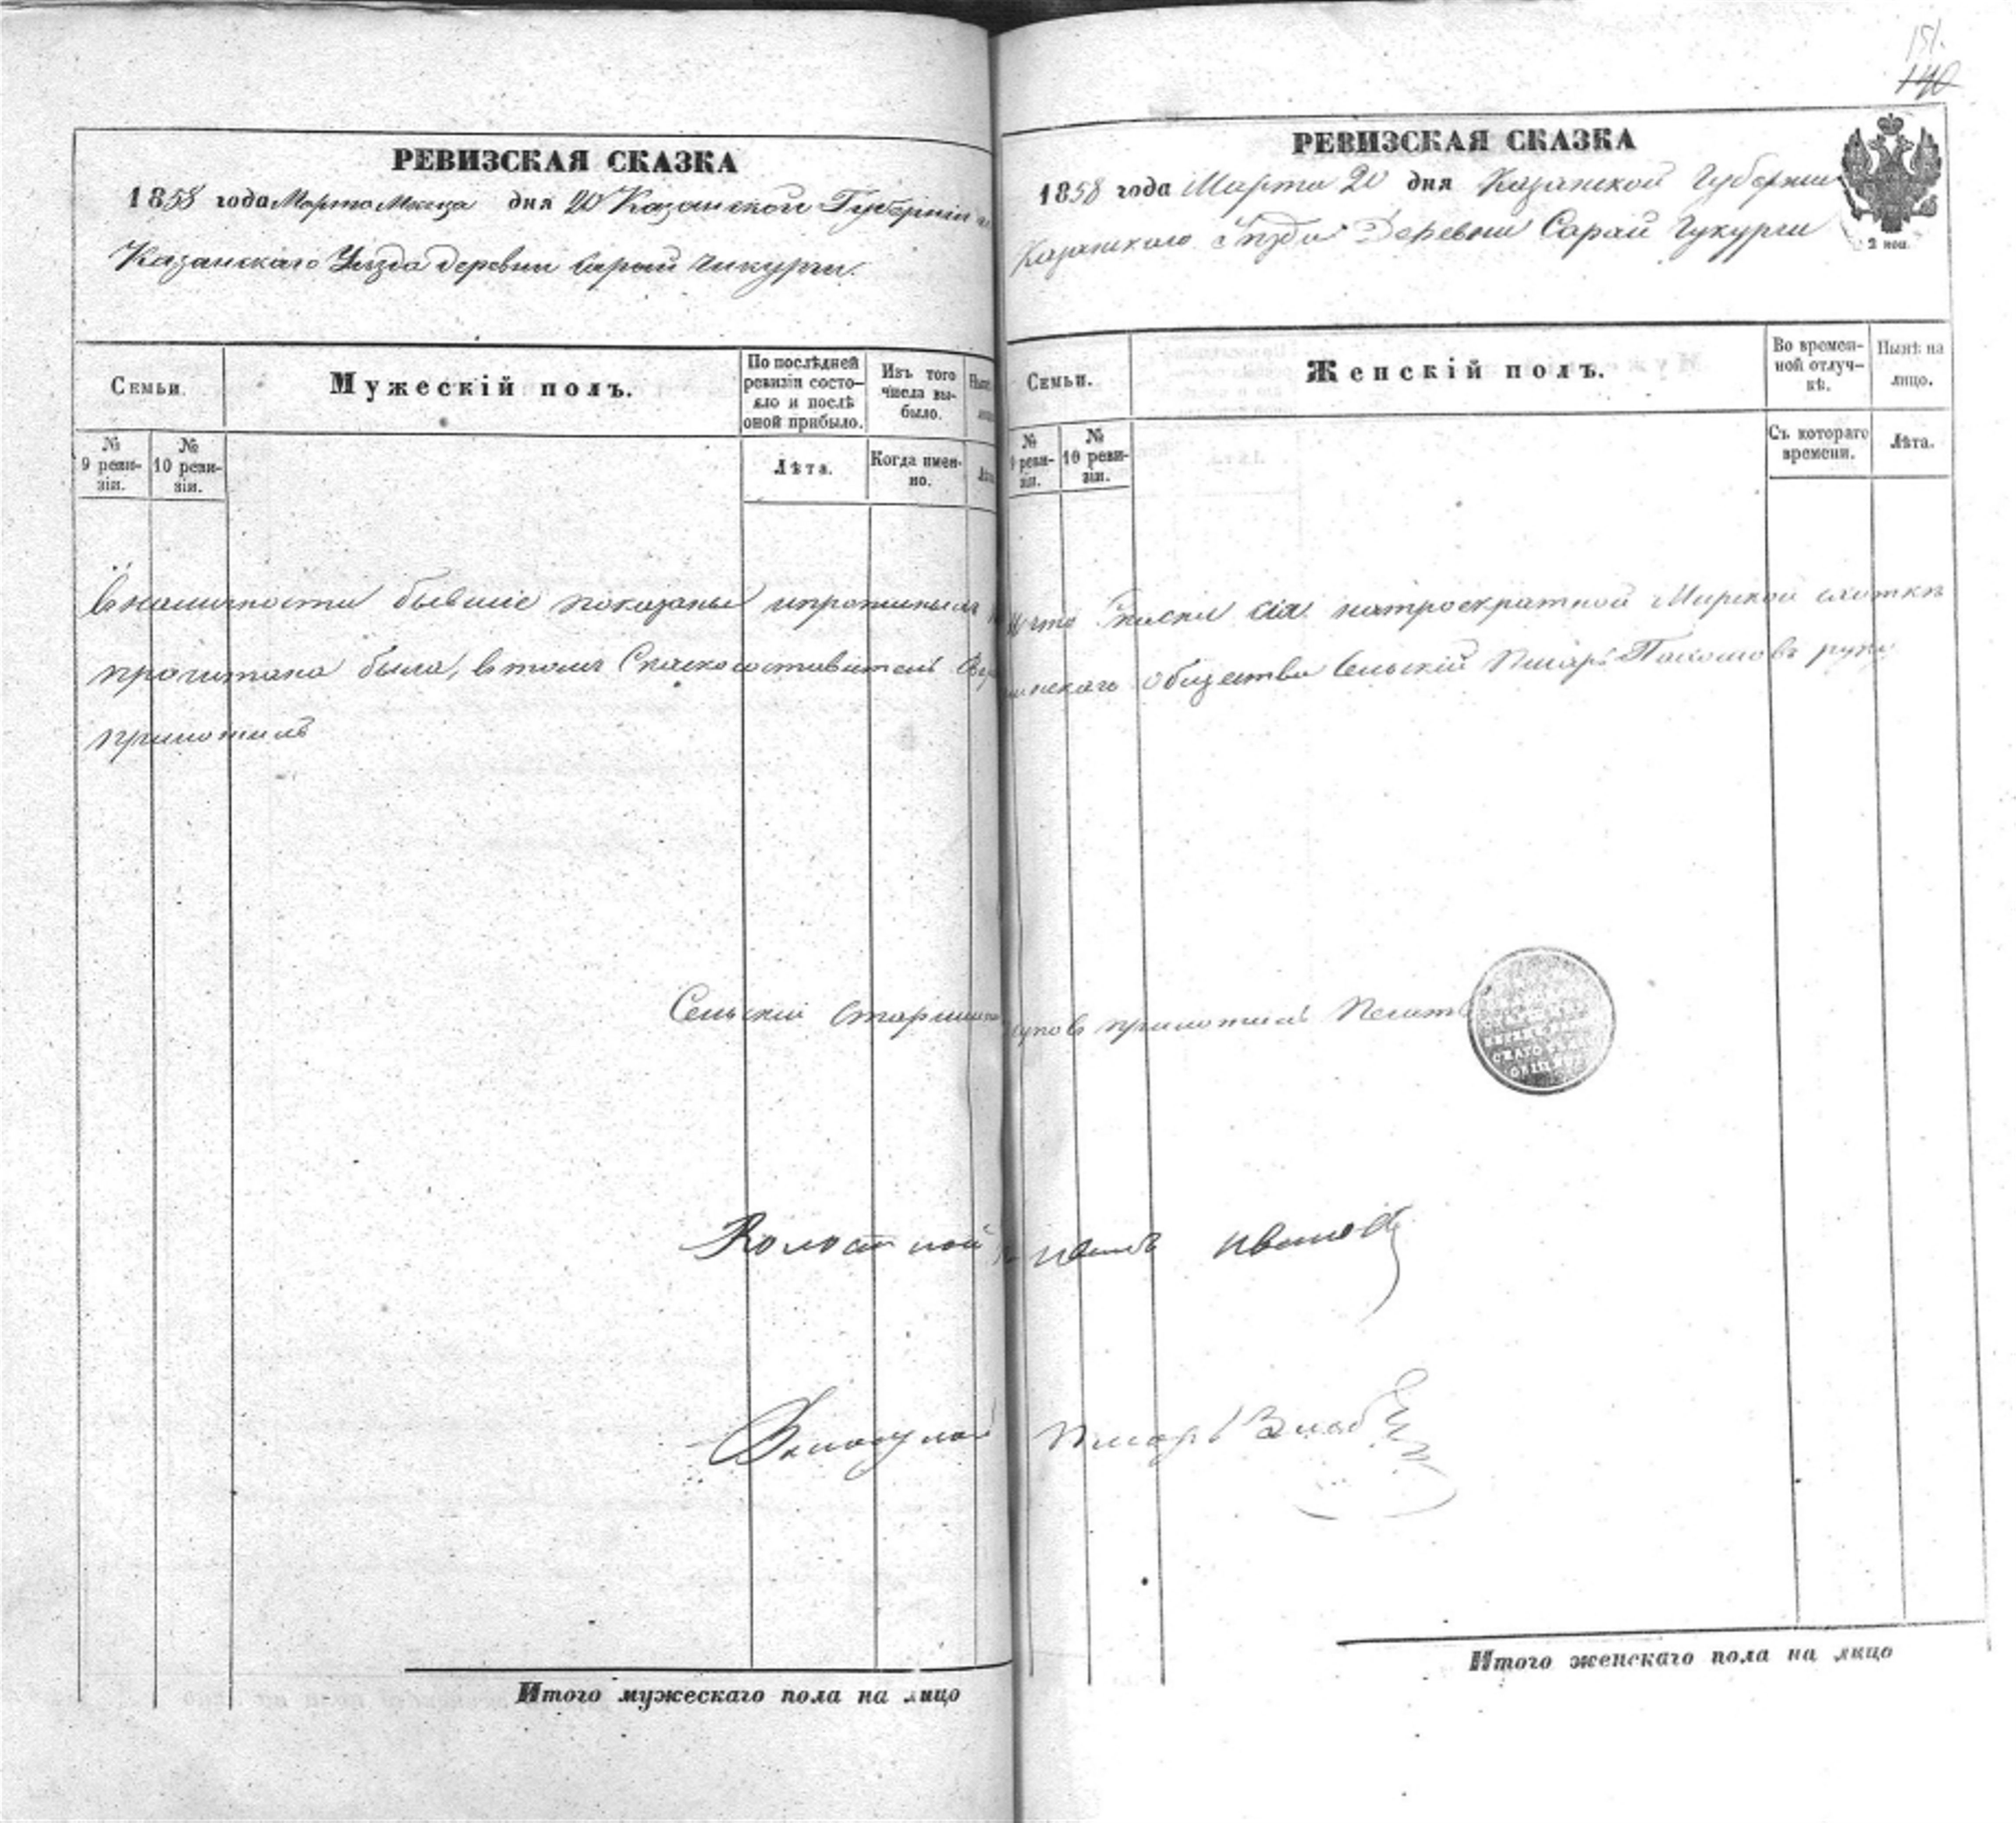 151.
140
РЕВИЗСКАЯ СКАЗКА
1858 года Марта Месеца дня 20 Казанской Губернии
Казанскаго Уезда деревни Сарай Чекурги.
Семьи.
Мужескій полъ.
По послѣдней ревизіи состояло и послѣ оной прибыло.
Изъ того числа выбыло.
№ 9 ревизіи.
№ 10 ревизіи.
Лѣта.
Когда именно.
в наличности бывшіе показаны
прочитана была, в томъ Сказкосоставитель
приложилъ
Сельскій Старшина
Волостной
Итого мужескаго пола на лицо
РЕВИЗСКАЯ СКАЗКА
1858 года Марта 20 дня Казанской Губернии
Казанскаго Уезда Деревни Сарай Чукурги
2 коп.
Семьи.
Женскій полъ.
Во временной отлучкѣ.
Нынѣ на лицо.
№ 9 ревизіи.
№ 10 ревизіи.
Съ котораго времени.
Лѣта.
что сія Мирской сходкѣ
общества Сельскій Писарь руку
приложилъ Печать
СКАГО
Ивановъ
Писарь
Итого женскаго пола на лицо